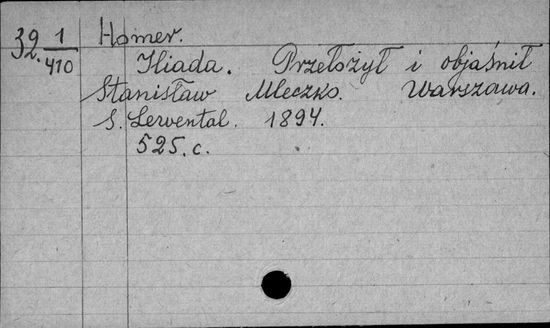 Homer.
39. 1/410
Iliada. Przełożył i objaśnił
Stanisław Mleczko. Warszawa.
S. Lewental. 1894.
525. c.